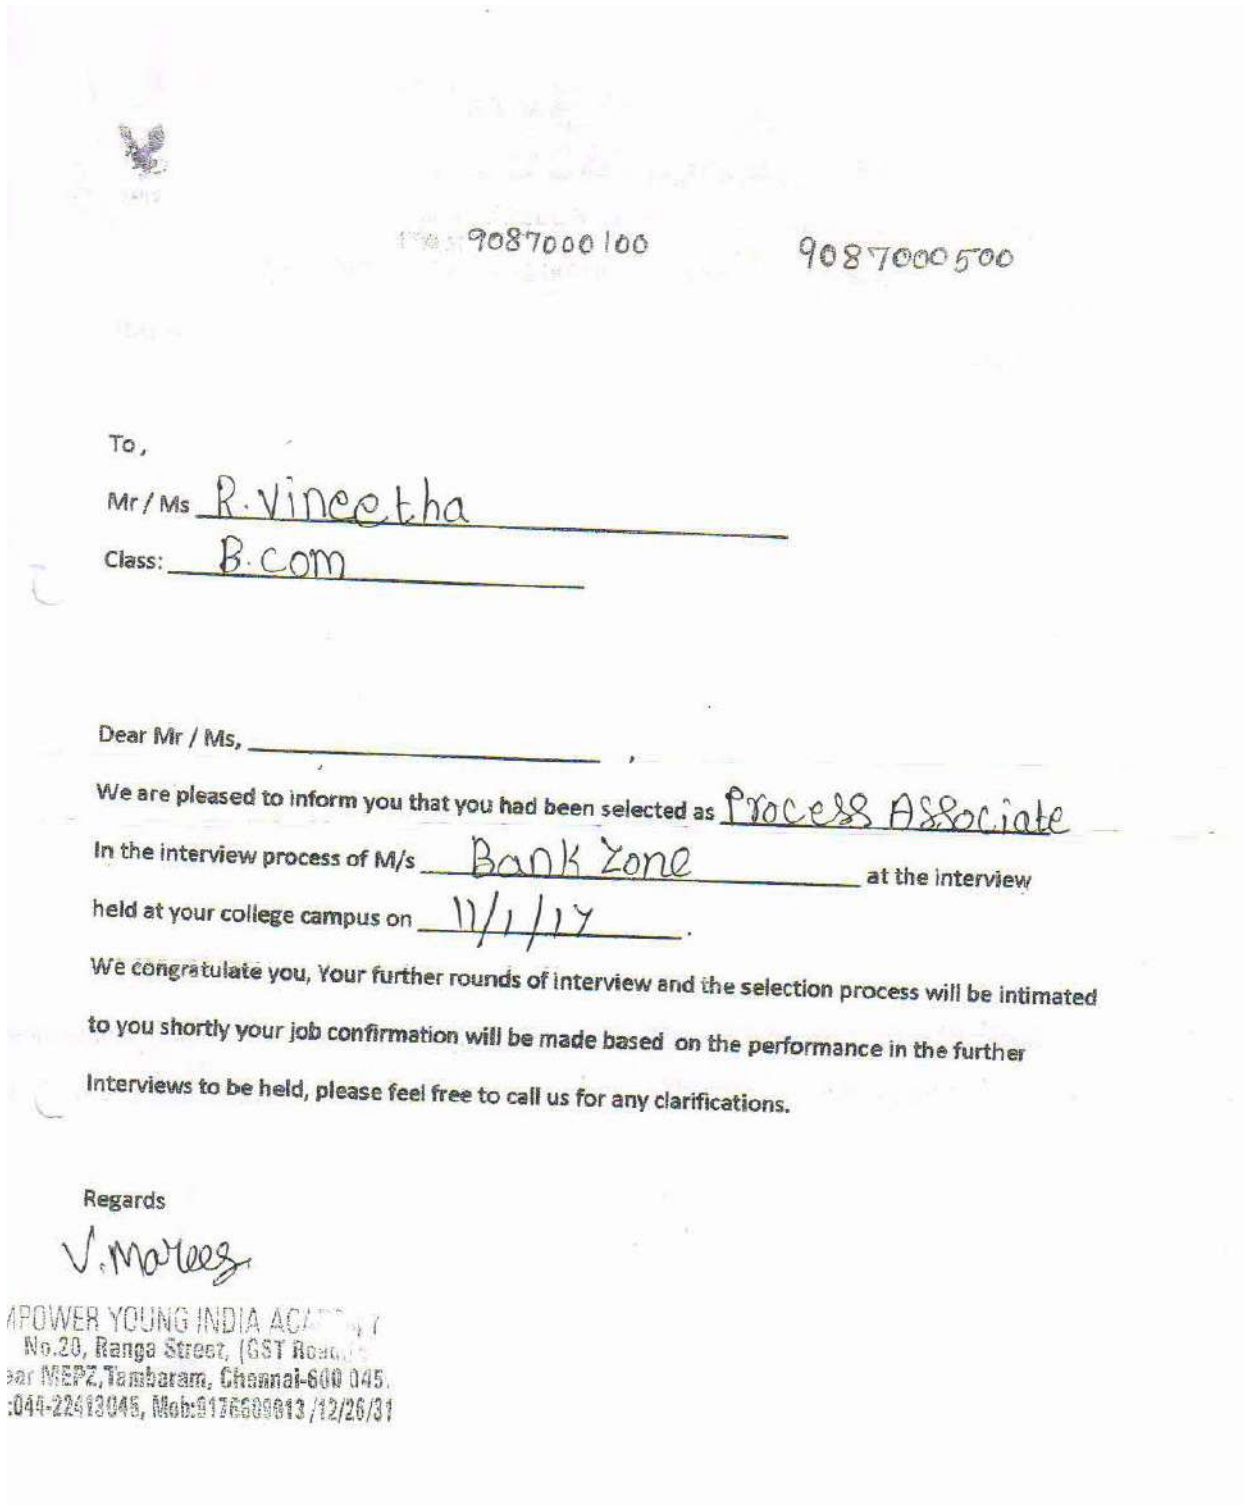 9087000100 9087000500
To,
Mr / Ms R. Vineetha
Class: B.com
Dear Mr / Ms, ,
We are pleased to inform you that you had been selected as Process Associate
In the interview process of M/s Bank Zone at the interview
held at your college campus on 11/1/17.
We congratulate you, Your further rounds of interview and the selection process will be intimated
to you shortly your job confirmation will be made based on the performance in the further
Interviews to be held, please feel free to call us for any clarifications.
Regards
V. Marees
MPOWER YOUNG INDIA
No.20, Ranga Street, (GST Road
ear MEPZ, Tambaram, Chennai-600 045.
:044-22413045, Mob:9176609813 /12/26/31